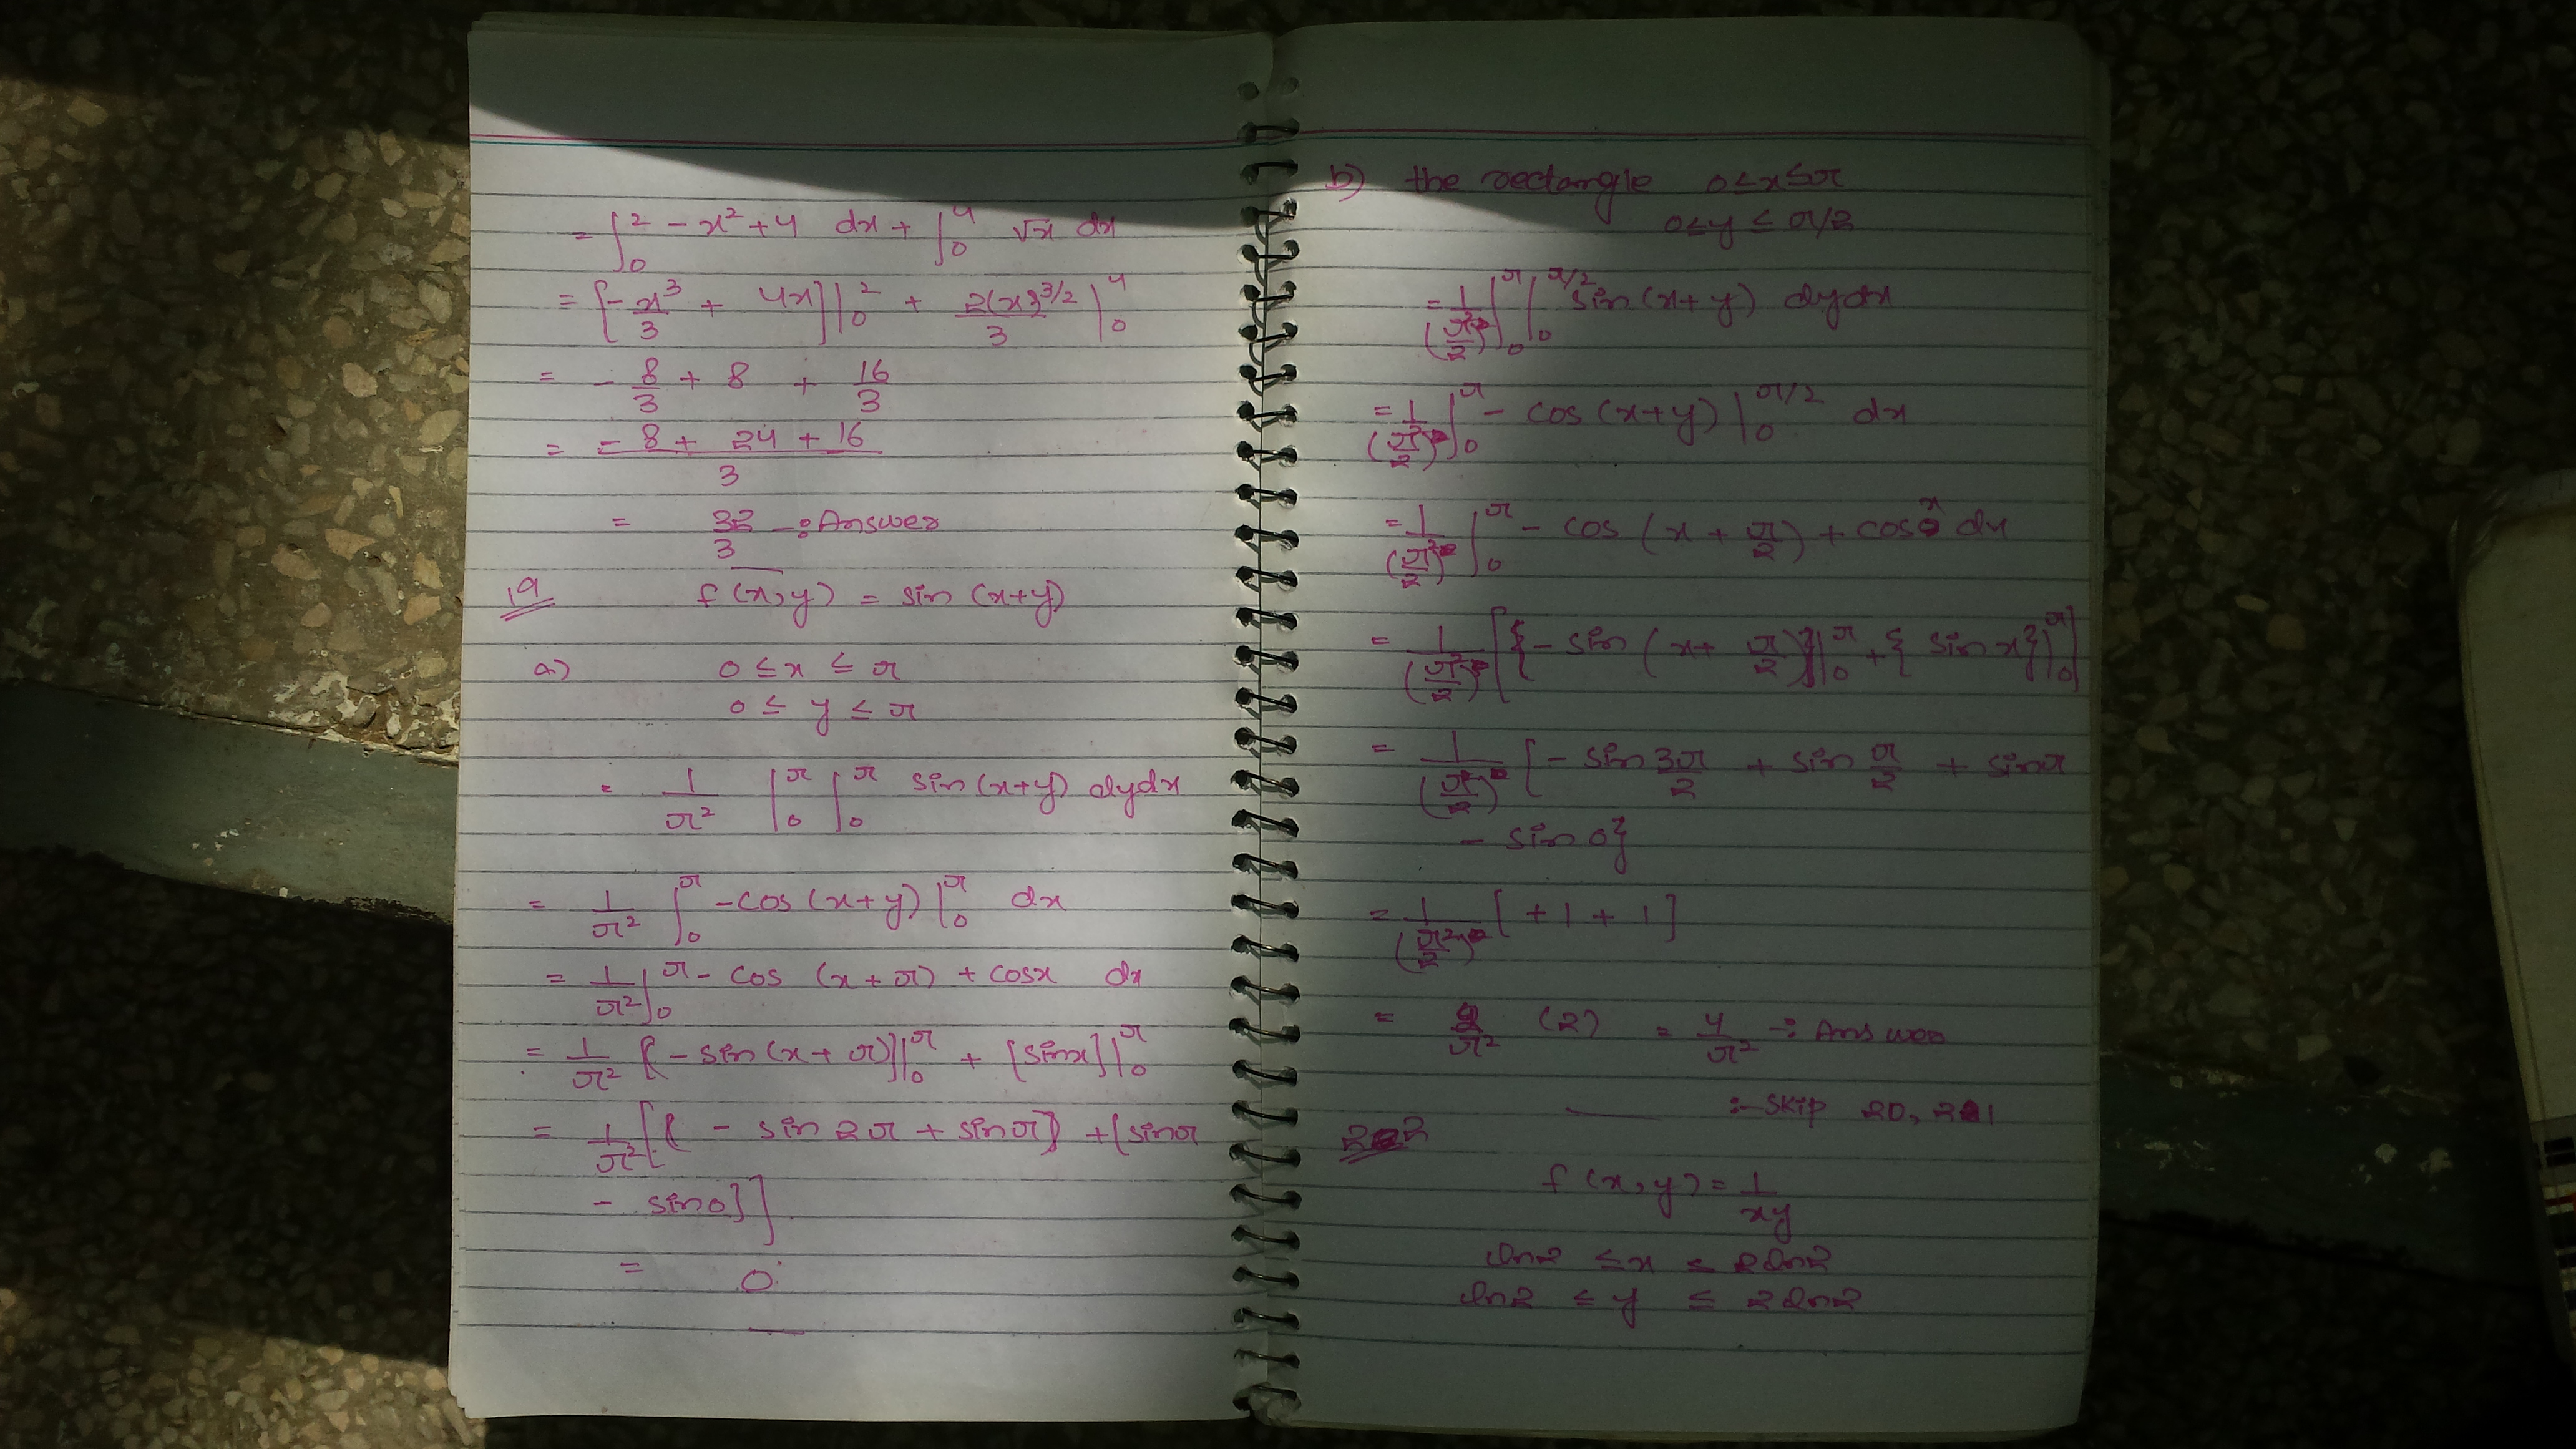 = ∫₀² -x² + 4 dx + ∫₀⁴ √x dx
= [-x³/3 + 4x]|₀² + 2(x)^3/2 / 3 |₀⁴
= -8/3 + 8 + 16/3
= -8 + 24 + 16 / 3
= 32/3 -: Answer
19 f(x,y) = sin(x+y)
a) 0 ≤ x ≤ π
0 ≤ y ≤ π
= 1/π² ∫₀^π ∫₀^π sin(x+y) dydx
= 1/π² ∫₀^π -cos(x+y)|₀^π dx
= 1/π² ∫₀^π - cos (x+π) + cosx dx
= 1/π² [-sin(x+π)]|₀^π + [sinx]|₀^π
= 1/π² [{ - sin 2π + sinπ} + {sinπ
- sin0}]
= 0
b) the rectangle 0≤x≤π
0≤y ≤ π/2
= 1/(π²/2) ∫₀^π ∫₀^π/2 sin(x+y) dydx
= 1/(π²/2) ∫₀^π - cos (x+y)|₀^π/2 dx
= 1/(π²/2) ∫₀^π - cos (x + π/2) + cos x dx
= 1/(π²/2) [{-sin (x+ π/2)}|₀^π + { sin x}|₀^π]
= 1/(π²/2) [- sin 3π/2 + sin π/2 + sinπ
- sin 0}
= 1/(π²/2) [ +1 + 1 ]
= 2/π² (2) = 4/π² -: Answer
:- Skip 20, 21
22
f(x,y) = 1/xy
ln2 ≤ x ≤ 2ln2
ln2 ≤ y ≤ 2ln2